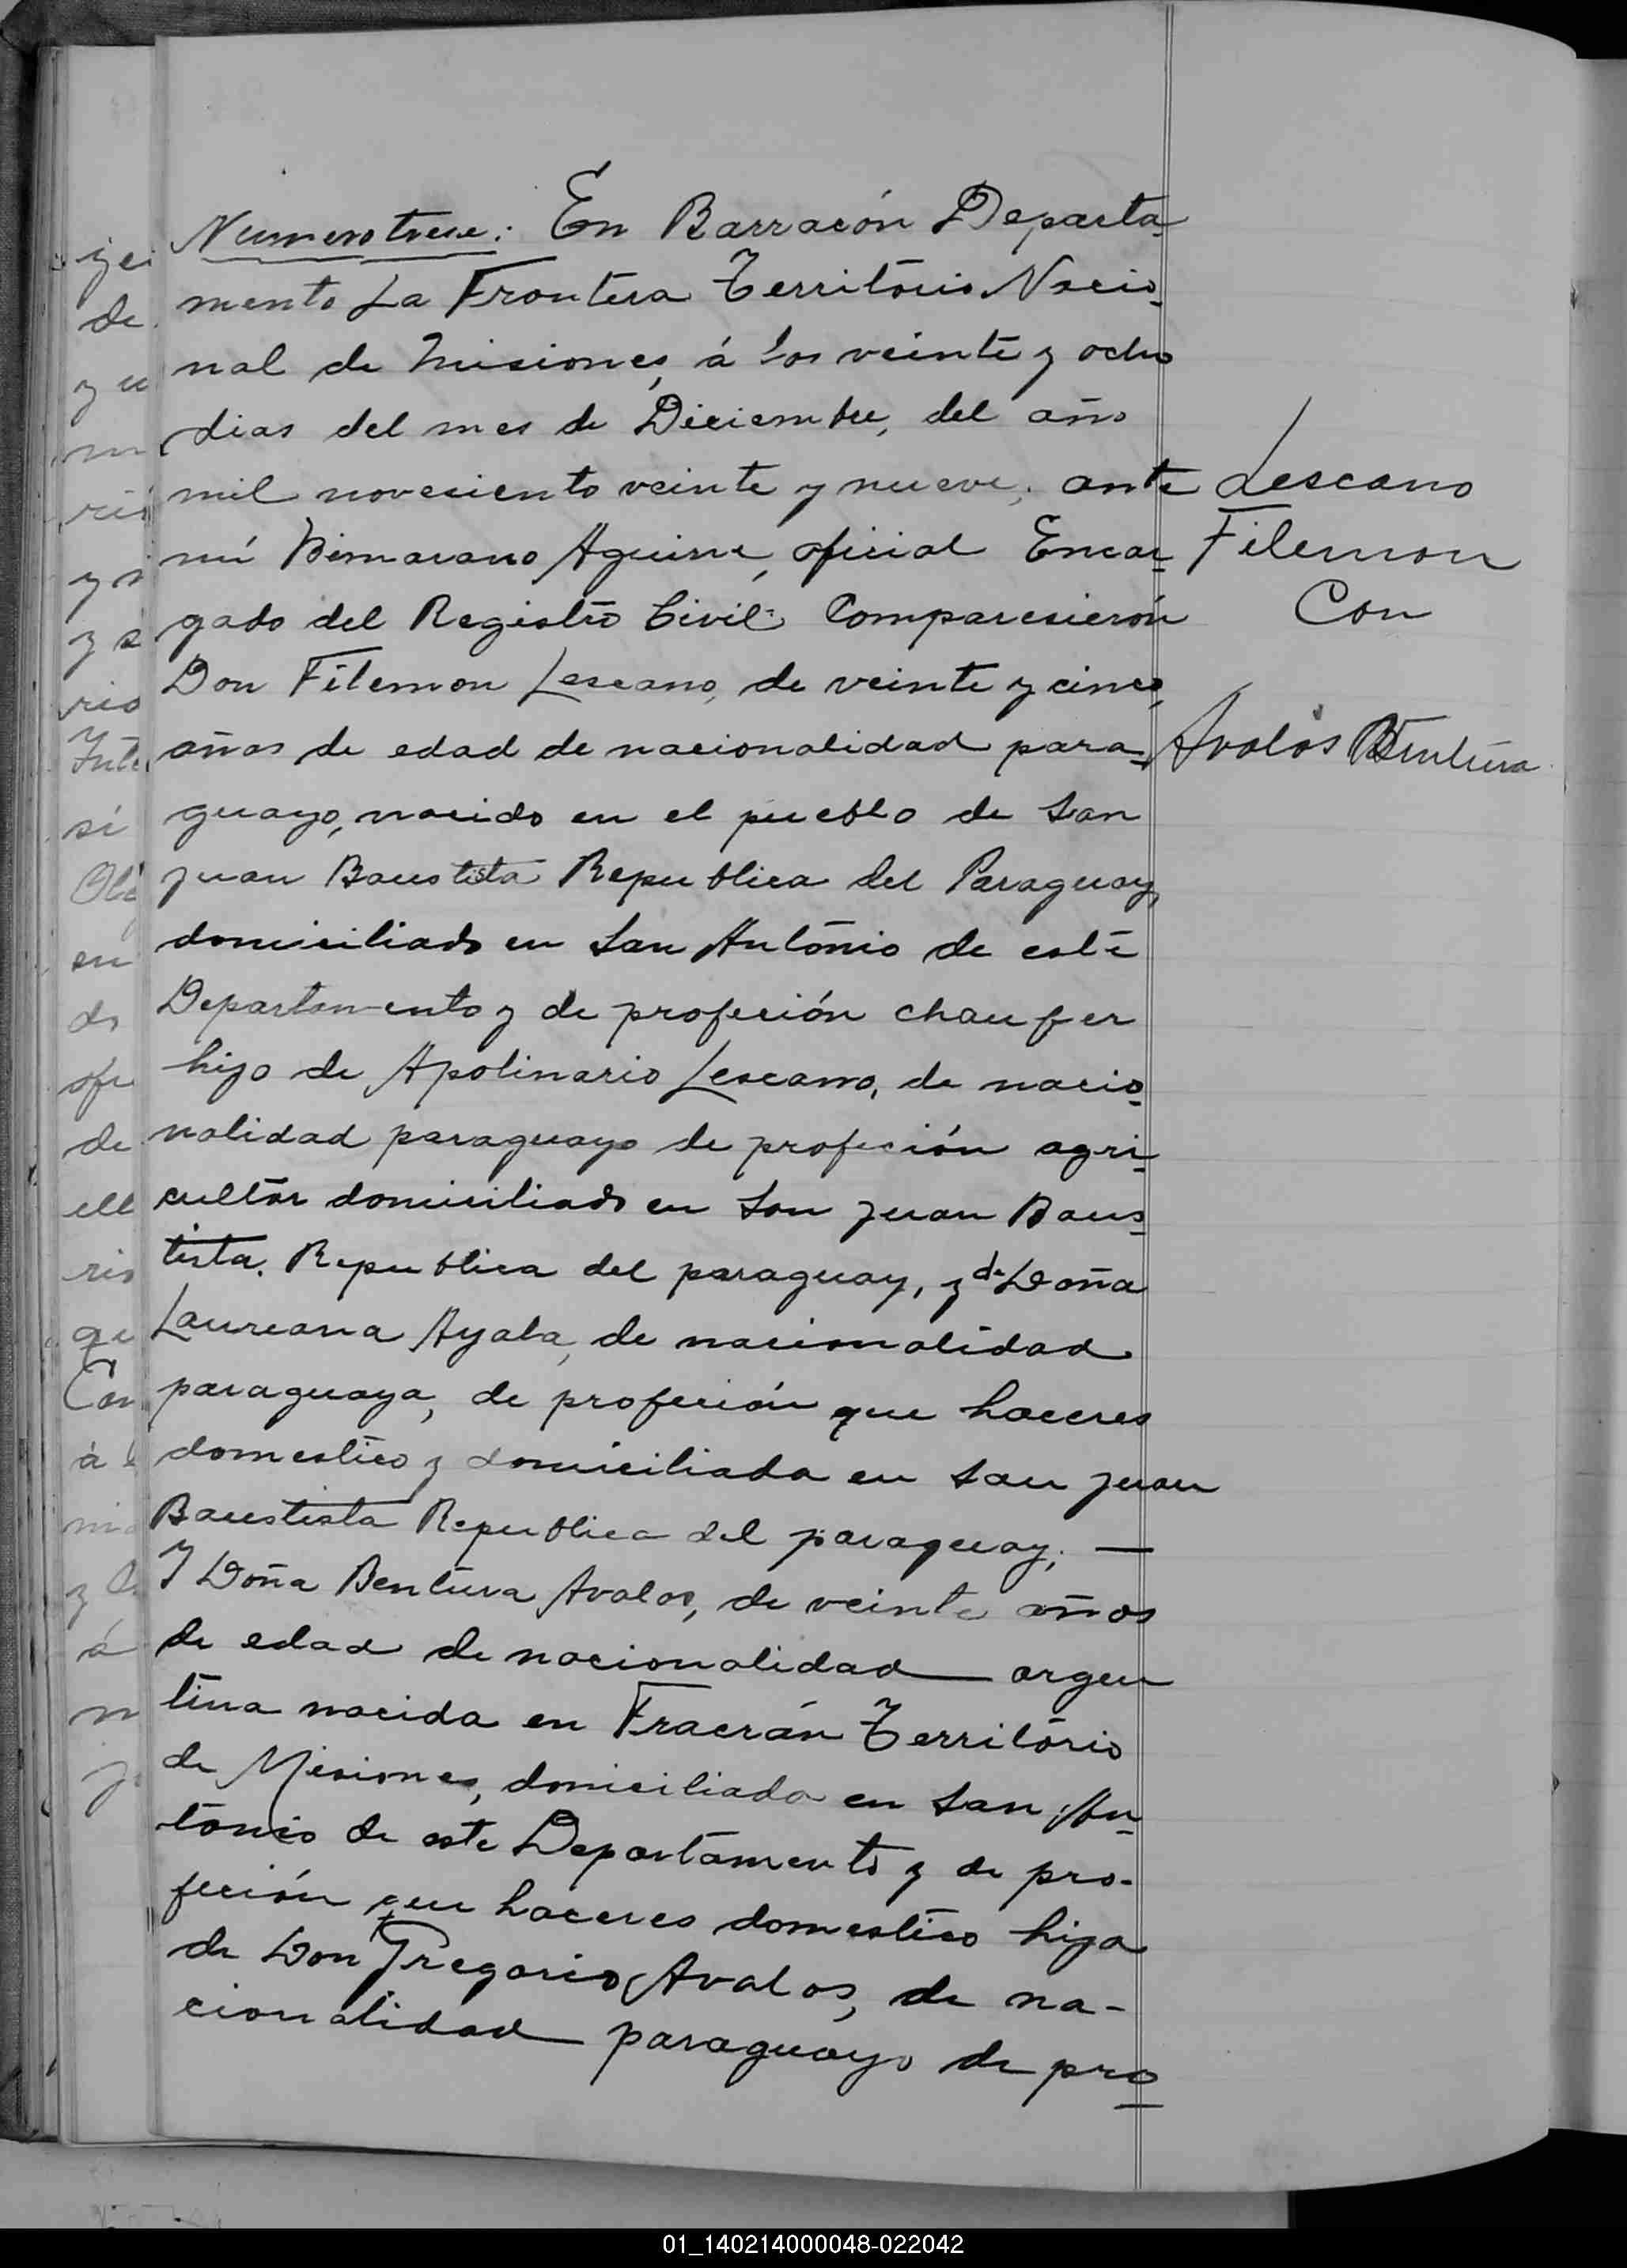 Numero trece: En Barracón Departa-
mento La Frontera Territorio Nacio-
nal de Misiones, á los veinte y ocho
dias del mes de Diciembre, del año
mil noveciento veinte y nueve, ante
mí Aguirre, oficial Encar-
gado del Registro Civil: Comparesierón
Don Filemon Lescano, de veinte y cinco,
años de edad de nacionalidad para-
guayo, nacido en el pueblo de San
Juan Baustista Republica del Paraguay,
domiciliado en San António de este
Departamento y de profeción chaufer
hijo de Apolinario Lescano, de nacio-
nalidad paraguayo de profeción agri-
cultor domiciliado en San Juan Baus-
tista. Republica del paraguay, y de Doña
Laureana Ayala, de nacionalidad
paraguaya, de profeción que haceres
domestico y domiciliada en San Juan
Baustista Republica del paraguay; —
Y Doña Bentura Avalos, de veinte años
de edad de nacionalidad argen
tina nacida en Fracrán Território
de Misiones, domiciliada en San An-
tonio de este Departamento y de pro-
feción que haceres domestico hija
de Don Gregorio Avalos, de na-
cionalidad paraguayo de pro-
Lescano
Filemon
Con
Avalos Bentura
01_140214000048-022042